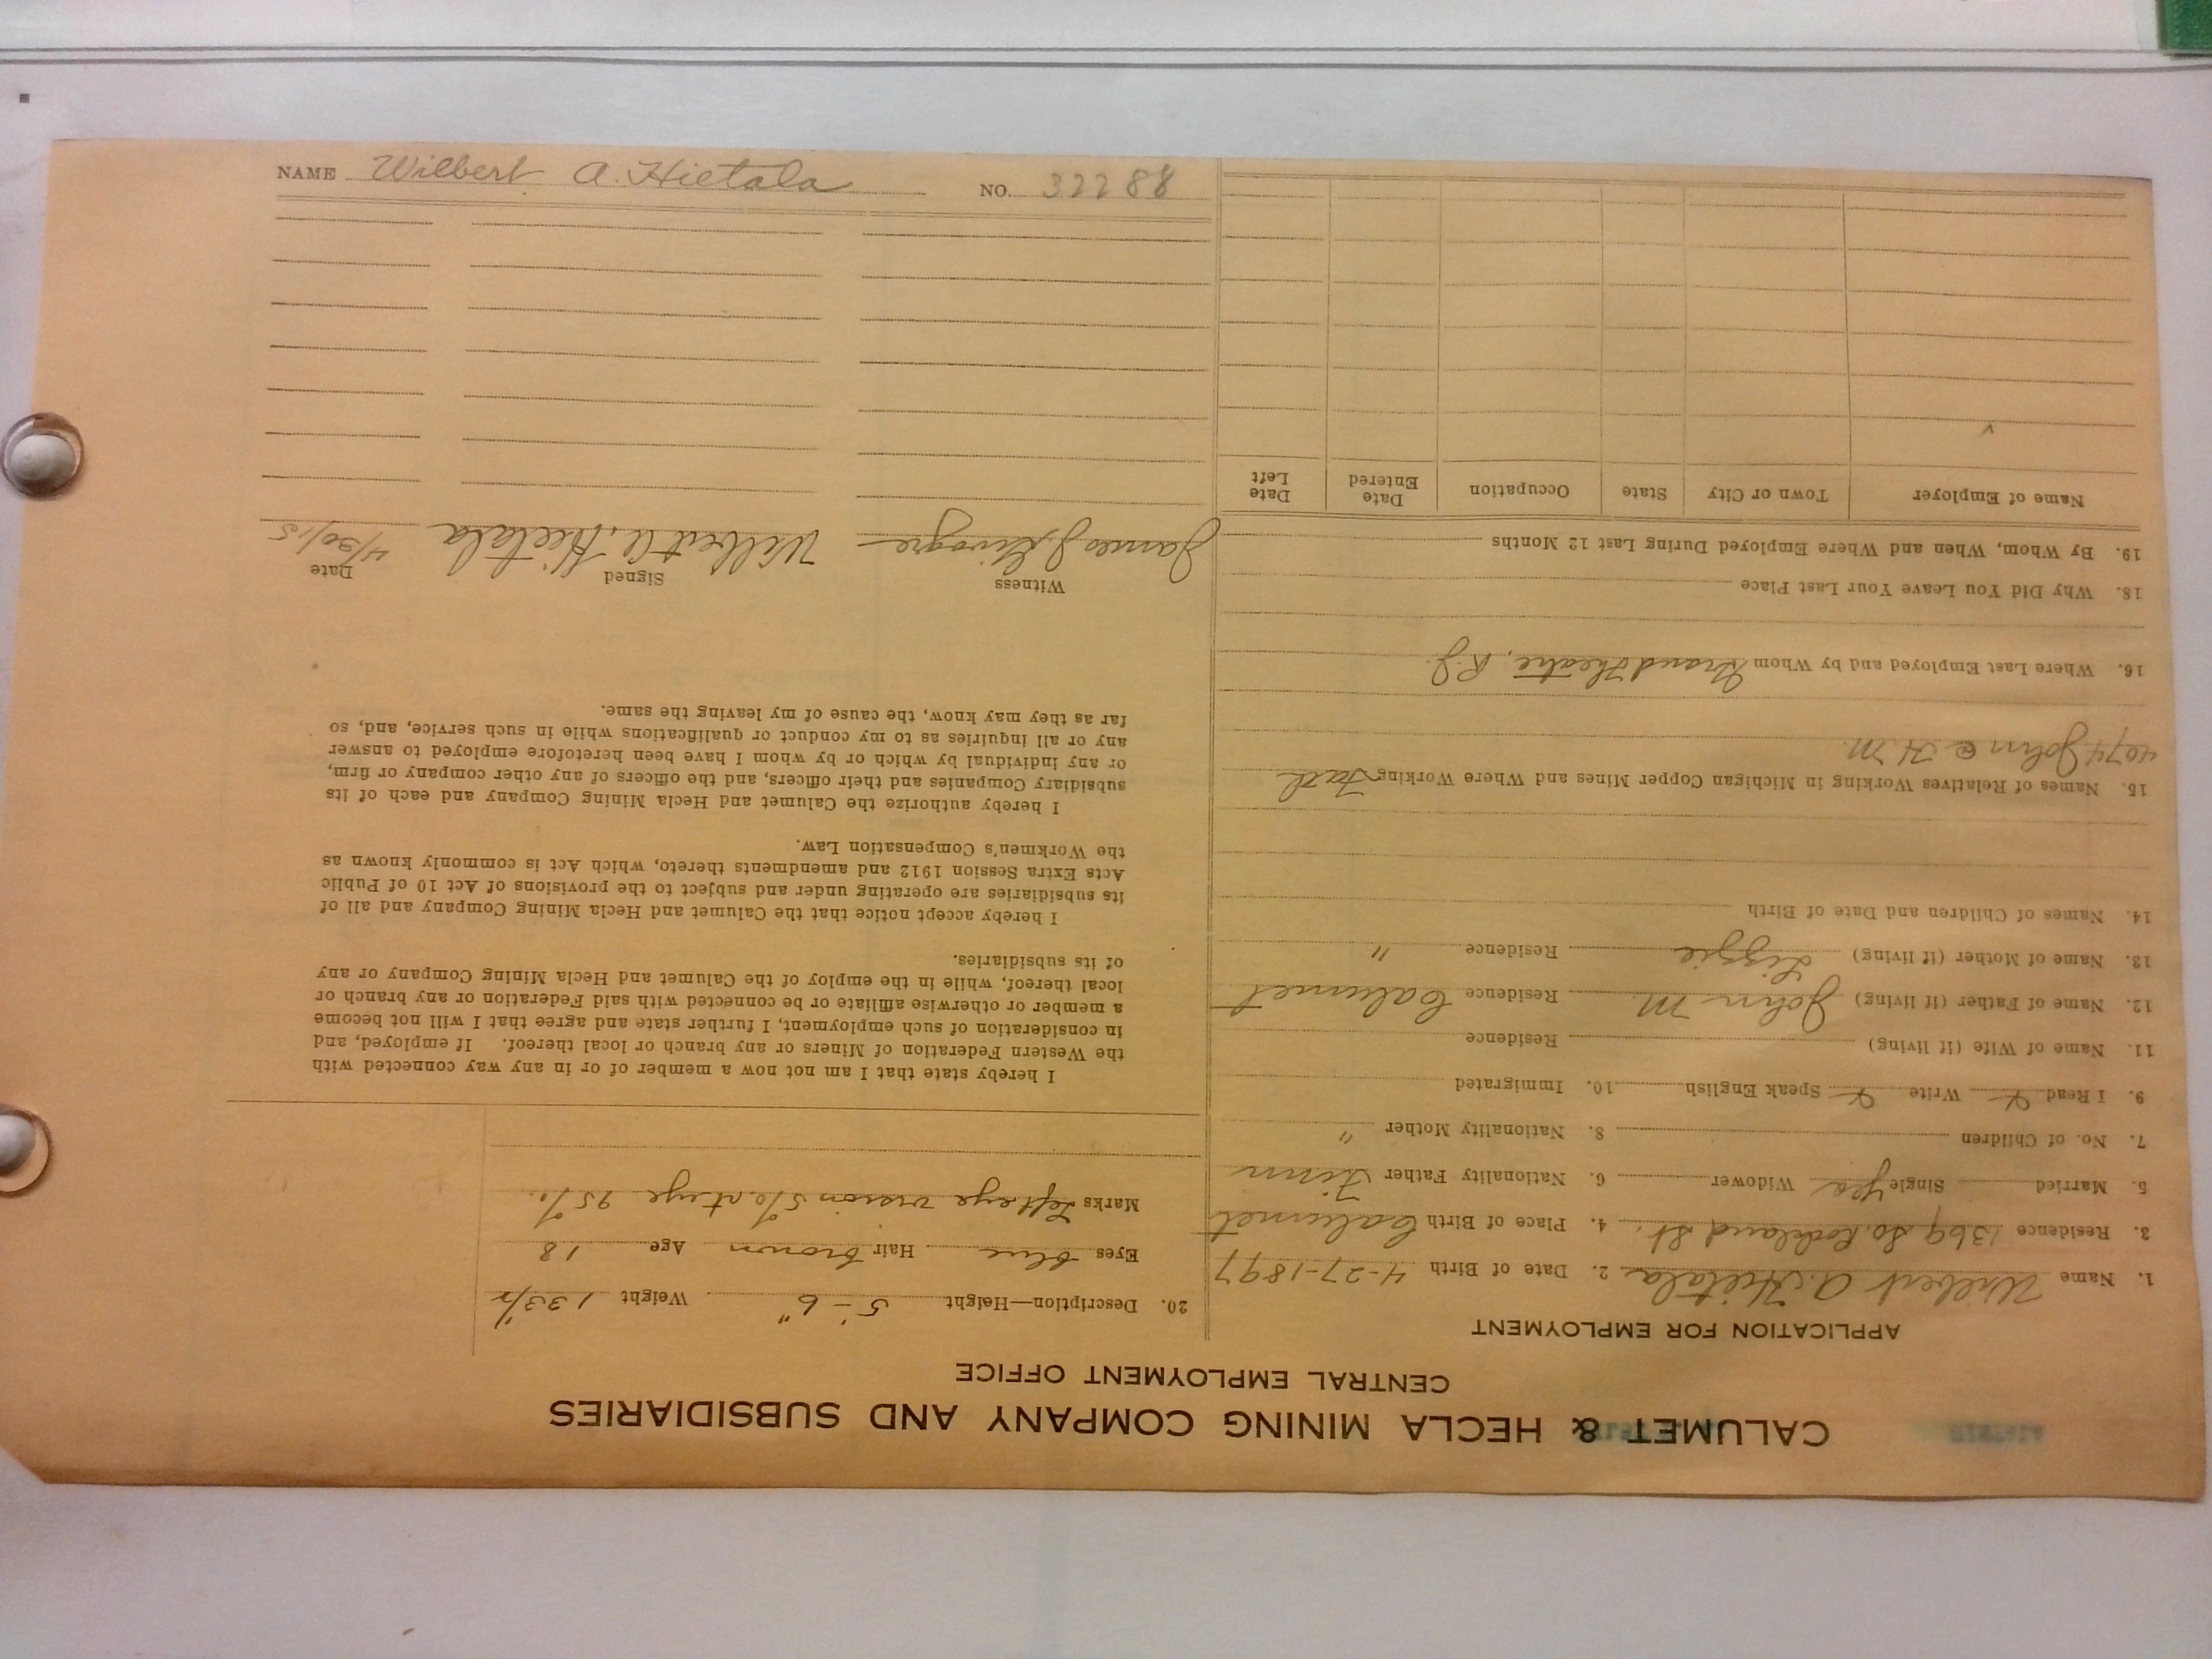 NAME Wilbert A. Hietala NO. 32288
CALUMET & HECLA MINING COMPANY AND SUBSIDIARIES
CENTRAL EMPLOYMENT OFFICE
APPLICATION FOR EMPLOYMENT
1. Name Wilbert A. Hietala 2. Date of Birth 4-27-1897
3. Residence 1369 So. Rockland St. 4. Place of Birth Calumet
5. Married Single yes Widower 6. Nationality Father Finn
7. No. of Children 8. Nationality Mother "
9. I Read Y Write Y Speak English 10. Immigrated
11. Name of Wife (if living) Residence
12. Name of Father (if living) John M. Residence Calumet
13. Name of Mother (if living) Lizzie Residence "
14. Names of Children and Date of Birth
15. Names of Relatives Working in Michigan Copper Mines and Where Working Fath
4074 John @ H.M.
16. Where Last Employed and by Whom Grand Theatre, R.J.
18. Why Did You Leave Your Last Place
19. By Whom, When and Where Employed During Last 12 Months
Name of Employer Town or City State Occupation Date Entered Date Left
20. Description—Height 5'-6" Weight 133½
Eyes blue Hair brown Age 18
Marks Left eye vision 5% rt eye 95%.
I hereby state that I am not now a member of or in any way connected with
the Western Federation of Miners or any branch or local thereof. If employed, and
in consideration of such employment, I further state and agree that I will not become
a member or otherwise affiliate or be connected with said Federation or any branch or
local thereof, while in the employ of the Calumet and Hecla Mining Company or any
of its subsidiaries.
I hereby accept notice that the Calumet and Hecla Mining Company and all of
its subsidiaries are operating under and subject to the provisions of Act 10 of Public
Acts Extra Session 1912 and amendments thereto, which Act is commonly known as
the Workmen's Compensation Law.
I hereby authorize the Calumet and Hecla Mining Company and each of its
subsidiary Companies and their officers, and the officers of any other company or firm,
or any individual by which or by whom I have been heretofore employed to answer
any or all inquiries as to my conduct or qualifications while in such service, and, so
far as they may know, the cause of my leaving the same.
Witness Signed Date
James J. Wilbert A. Hietala 4/30/15